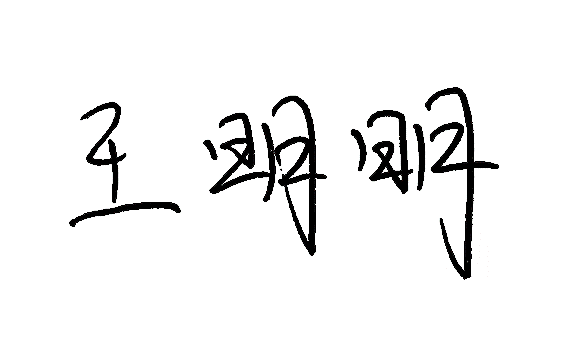 王明明